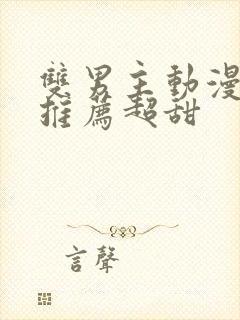 雙男主動漫
推薦超甜
言聲